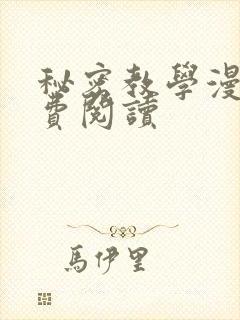 秘密教學漫
費閱讀
馬伊里